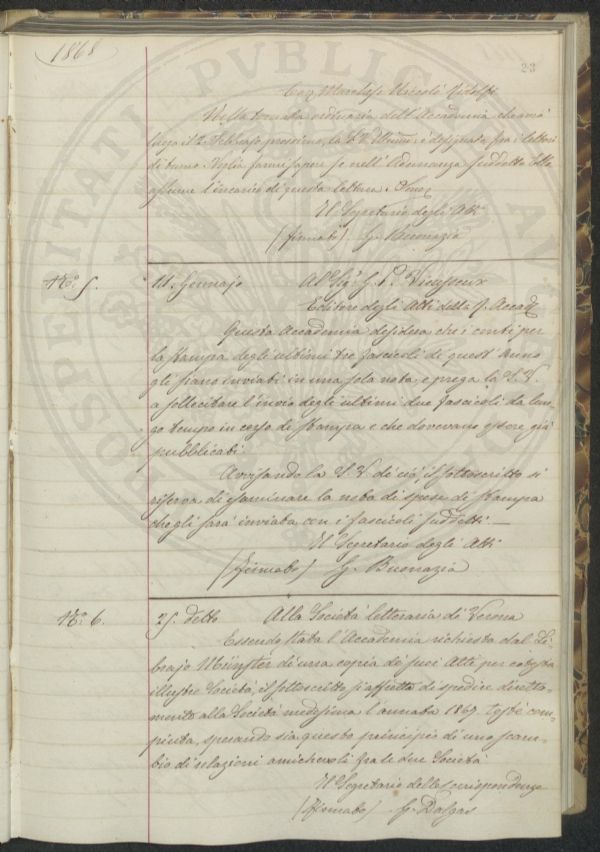 1868
23
Cav. Marchese Niccolò Ridolfi
Nella tornata ordinaria dell'Accademia che avrà
luogo il 2 Febbrajo prossimo, la S. V. Illma è designata fra i lettori
di turno. Voglia farmi sapere se nell'Adunanza suddetta Ella
assume l'incarico di questa lettura.
Il Segretario degli Atti
(firmato) G. Buonazia
No. 5.
11. Gennajo Al Sigr G. P. Vieusseux
Editore degli Atti della R. Accad.
Questa Accademia desidera che i conti per
la stampa degli ultimi tre fascicoli di quest'anno
gli siano inviati in una sola nota, e prega la S. V.
a sollecitare l'invio degli ultimi due fascicoli da lun-
go tempo in corso di stampa e che dovevano essere già
pubblicati.
Avvisando la S. V. di ciò, il sottoscritto si
riserva di esaminare la nota di spese di stampa
che gli sarà inviata con i fascicoli suddetti. —
Il Segretario degli Atti
(firmato) G. Buonazia
No. 6.
25. detto Alla Società letteraria di Verona
Essendo stata l'Accademia richiesta dal Li-
brajo Münster di una copia di suoi Atti per cotesta
illustre Società, il sottoscritto si affretta di spedire diretta-
mente alla Società medesima l'annata 1867 testè com-
piuta, sperando sia questo principio di uno scam-
bio di relazioni amichevoli fra le due Società
Il Segretario delle Corrispondenze
(firmato) G. Dalgas
PUBLICAE